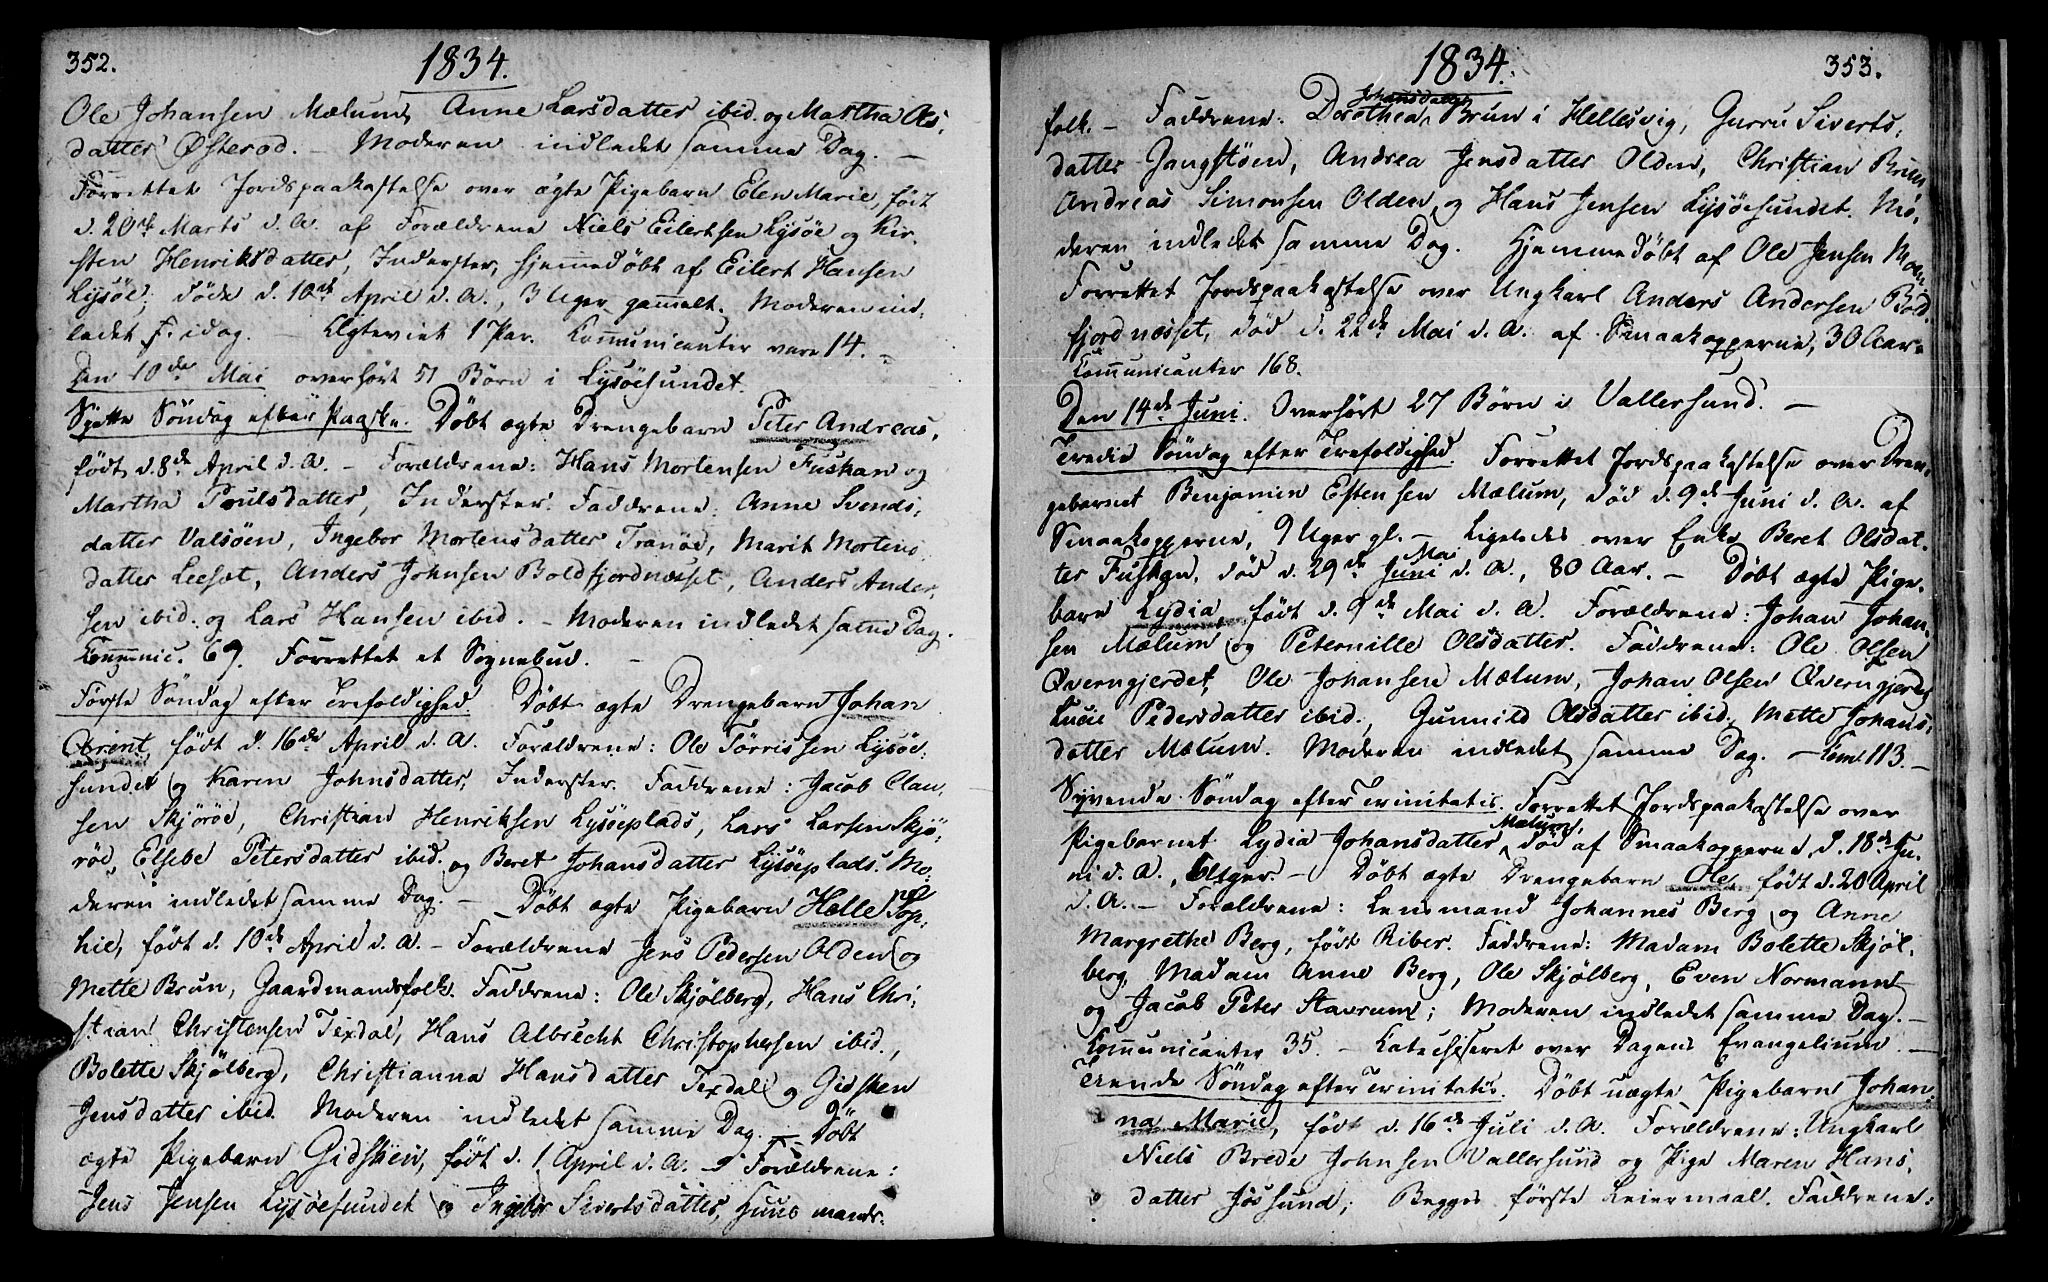 352.
1834.
Ole Johansen Mælum, Anne Larsdatter ibid. og Martha
datter Østerød. – Moderen indledet samme Dag. –
Forrettet Jordspaakastelse over ægte Pigebarn Elen Marie, født
d. 20de Marts d. A. af Forældrene Niels Eilertsen Lysøe og Kir-
sten Henriksdatter, Inderster, hjemmedøbt af Eilert Hansen
Lysøe; døde d. 10de April d. A., 3 Uger gammelt. Moderen ind-
ledet f. idag. – Ægteviet 1 Par. Communicanter vare 14. –
Den 10de Mai overhørt 51 Børn i Lysøesundet.
Sjette Søndag efter Paaske. Døbt ægte Drengebarn Peter Andreas,
født d. 8de April d. A. – Forældrene: Hans Mortensen Fuskan og
Martha Poulsdatter, Inderster. Faddrene: Anne Svends-
datter Valsøen, Ingebor Mortensdatter Tranøe, Marit Mortens-
datter Leesæt, Anders Johnsen Boldfjordnæsset, Anders Ander-
sen ibid. og Lars Hansen ibid. – Moderen indledet samme Dag.
Communic. 69. Forrettet et Sognebud. –
Første Søndag efter Trefoldighed. Døbt ægte Drengebarn Johan
Arent, født d. 16de April d. A. Forældrene: Ole Tørrissen Lysøe-
sundet og Karen Johnsdatter, Inderster. Faddrene: Jacob Clau-
sen Skjørøe, Christian Henriksen Lysøeplads, Lars Larsen Skjø-
røe, Elsebe Petersdatter ibid. og Beret Johansdatter Lysøeplads. Mo-
deren indledet samme Dag. – Døbt ægte Pigebarn Hælle Sop-
hie, født d. 10de April d. A. – Forældrene Jens Pedersen Olden og
Mette Brun, Gaardmandsfolk. Faddrene: Ole Skjølberg, Hans Chri-
stian Christensen Texdal, Hans Albrecht Christophersen ibid.,
Bolette Skjølberg, Christianna Hansdatter Texdal og Gidsken
Jensdatter ibid. Moderen indledet samme Dag. – Døbt
ægte Pigebarn Gidsken, født d. 1 April d. A. – Forældrene:
Jens Jensen Lysøesundet og Ingebor Sivertsdatter, Huusmands-
353.
1834.
folk. – Faddrene: Dorothea Johansdatter Brun i Hellesvig, Gurru Siverts-
datter Jangstøen, Andrea Jensdatter Olden, Christian Brun
Andreas Simonsen Olden og Hans Jensen Lysøesundet. Mo-
deren indledet samme Dag. Hjemmedøbt af Ole Jensen
Forrettet Jordspaakastelse over Ungkarl Anders Andersen Bold-
fjordnæsset, død d. 22de Mai d. A. af Smaakopperne, 30 Aar.
Communicanter 168.
Den 14de Juni. Overhørt 27 Børn i Vallersund. –
Tredie Søndag efter Trefoldighed. Forrettet Jordspaakastelse over Dren-
gebarnet Benjamin Estensen Mælum, død d. 9de Juni d. A. af
Smaakopperne, 9 Uger gl. – Ligeledes over Enke Beret Olsdat-
ter Fuskan, død d. 29de Juni Mai d. A., 80 Aar. – Døbt ægte Pige-
barn Lydia, født d. 9de Mai d. A. Forældrene: Johan Johan-
sen Mælum og Peternille Olsdatter. Faddrene: Ole Olsen
Qværngjerdet, Ole Johansen Mælum, Johan Olsen Qværngjerdet
Lucie Pedersdatter ibid., Gunnild Olsdatter ibid. Mette Johans-
datter Mælum. Moderen indledet samme Dag. – Com. 113. –
Syvende Søndag efter Trinitatis. Forrettet Jordspaakastelse over
Pigebarnet Lydia Johansdatter Mælum, død af Smaakopperne, d. 18de Ju-
ni d. A., 6 Uger – Døbt ægte Drengebarn Ole, født d. 20 April
d. A. – Forældrene: Lensmand Johannes Berg og Anne
Margrethe Berg, født Riber. Faddrene: Madam Bolette Skjøl-
berg, Madam Anne Berg, Ole Skjølberg, Even Normann
og Jacob Peter Stavrum; Moderen indledet samme Dag. –
Communicanter 35. – Katechiseret over Dagens Evangelium. –
Tiende Søndag efter Trinitatis. Døbt uægte Pigebarn Johan-
na Marie, født d. 16de Juli d. A. Forældrene: Ungkarl
Niels Brede Johnsen Vallersund og Pige Maren Hans-
datter Jøssund; Begges første Leiermaal. Faddrene: